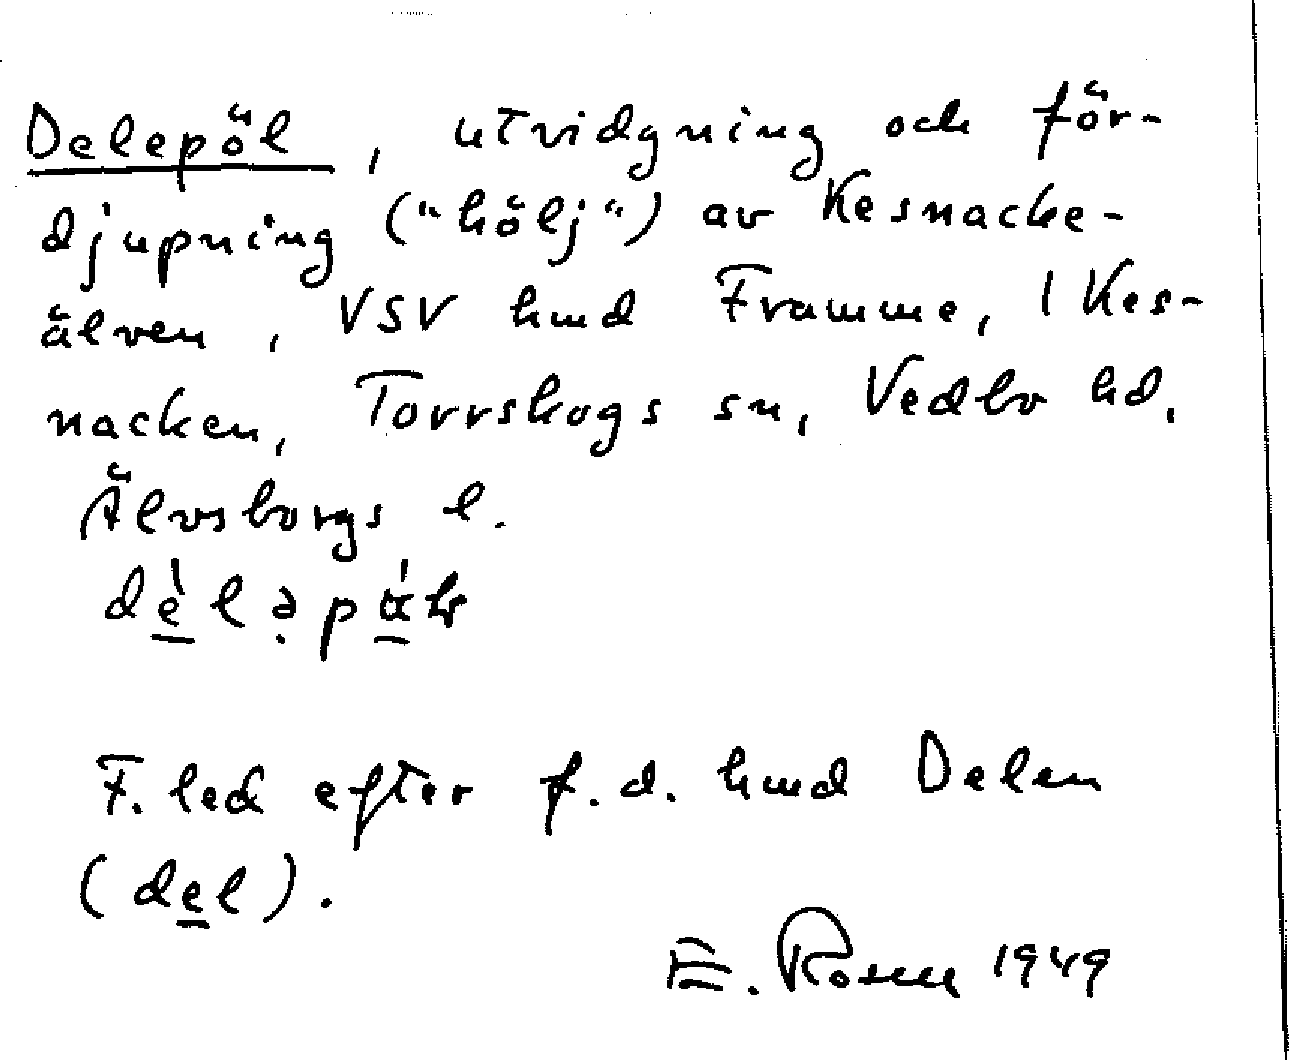 Delepöl, utvidgning och för-
djupning ("hölj") av Kesnacke-
älven, VSV hmd Framme, 1 Kes-
nacken, Torrskogs sn, Vedbo hd,
Älvsborgs l.
F. led efter f. d. hmd Delen
(del).
E. Rosell 1949